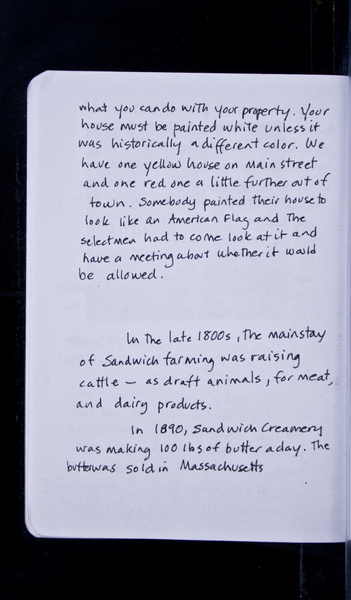 what you can do with your property. Your
house must be painted white unless it
was historically a different color. We
have one yellow house on Main street
and one red one a little further out of
town. Somebody painted their house to
look like an American Flag and the
selectmen had to come look at it and
have a meeting about whether it would
be allowed.
In the late 1800s, the mainstay
of Sandwich farming was raising
cattle — as draft animals, for meat,
and dairy products.
In 1890, Sandwich Creamery
was making 100 lbs of butter a day. The
butter was sold in Massachusetts